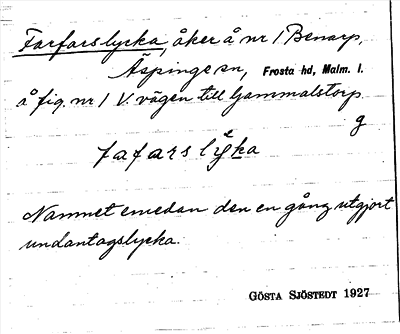 Farfarslycka, åker å nr 1 Benarp,
Äspinge sn, Frosta hd, Malm. l.
å fig. nr 1 V. vägen till Gammalstorp
g
fafarslyka
Namnet emedan den en gång utgjort
undantagslycka.
GÖSTA SJÖSTEDT 1927